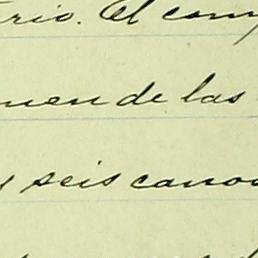 rio. El com
men de las
y seis cano